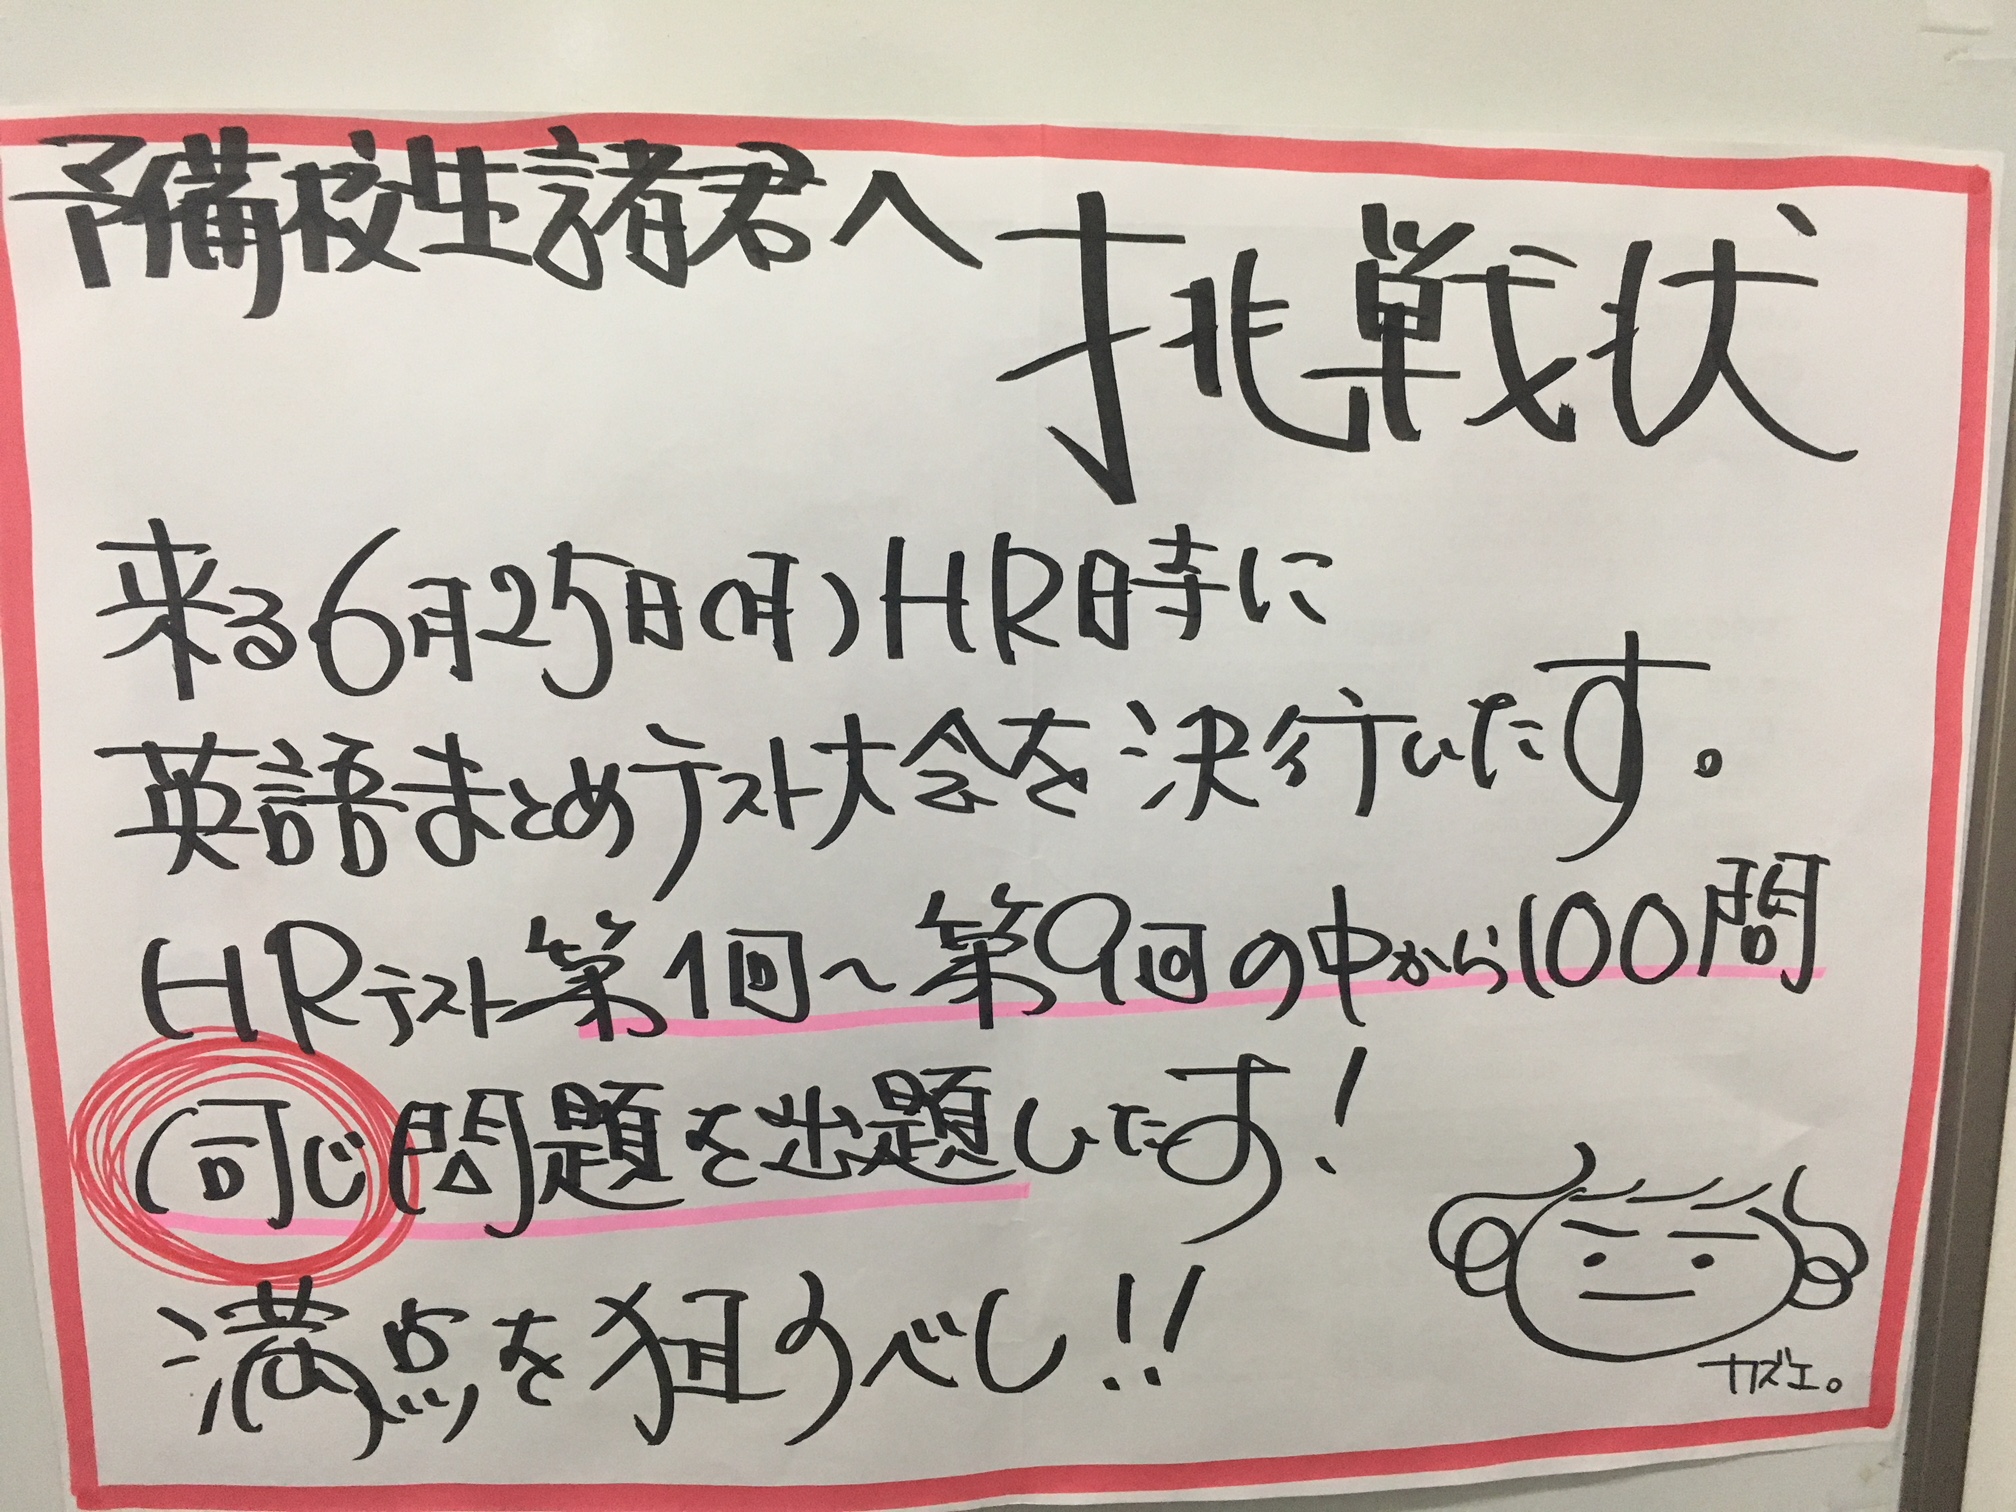 予備校生諸君へ
挑戦状
来る6月25日(月)HR時に
英語まとめテスト大会を決行いたす。
HRテスト第1回〜第9回の中から100問
同じ問題を出題いたす!
満点を狙うべし!!
カズエ。